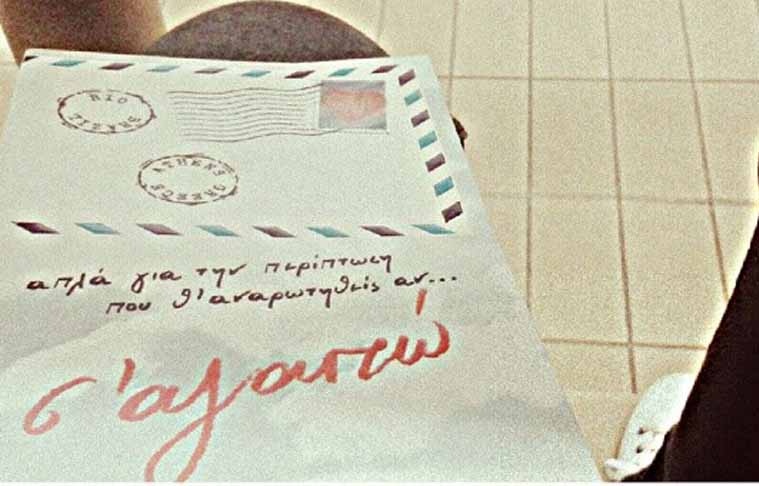 RIO
BRAZIL
ATHENS
GREECE
απλά για την περίπτωση
που θ'αναρωτηθείς αν...
σ'αγαπώ